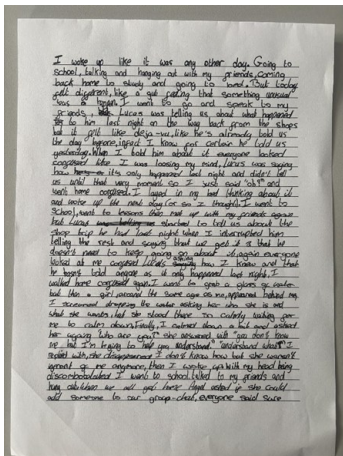 I woke up like it was any other day. Going to
school, talking and hanging out with my friends, coming
back home to study and going to bed. But today
felt different, like a gut feeling that something unusual
was a happen. I went to go and speak to my
friends, Lucas was telling us about what happened
to him last night on the walk back from the shops
but it felt like deja-vu, like he's already told us
the day before, infact I know for certain he told us
yesterday. When I told him about it everyone looked
confused like I was loosing my mind, Lucas was saying
how it's only happened last night and didn't tell
us until that very moment. So I just said "oh" and
went home confused. I layed in my bed thinking about it
and woke up the next day (or so I thought). I went to
school, went to lessons then met up with my friends again
but Lucas started to tell us about the
shop trip he had last night when I interrupted him
telling the rest and saying that we get it is that he
doesn't need to keep going on about it, again everyone
looked at me confused, Lucas how I knew and that
he hasn't told anyone as it only happened last night. I
walked home confused again. I went to grab a glass of water
but then a girl around the same age as me, appeared behind me,
I screamed dropping the water asking her who she is and
what she wants but she stood there so calmly waiting for
me to calm down. Finally, I calmed down a bit and asked
her again, "who are you?" she answered with "you don't know
me but I'm trying to help you understand" "understand what?" I
replied with, she disappeared I don't know how but she wasn't
infront of me anymore, then I woke up with my head being
discombobulated I went to school talked to my friends and
when we all got home Angel asked if she could
add someone to our group-chat, everyone said sure